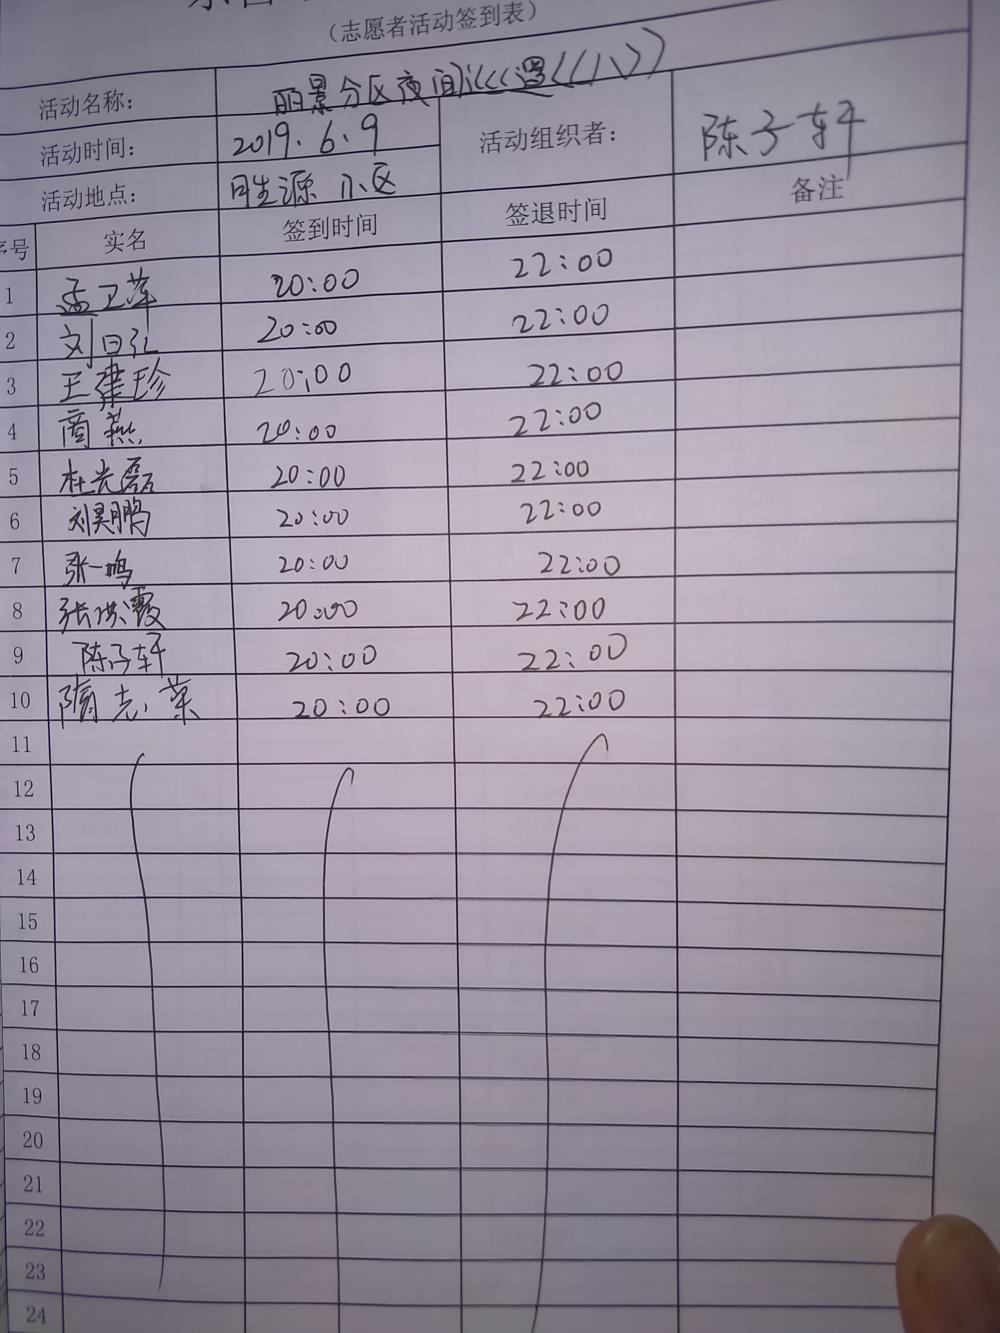 （志愿者活动签到表）
活动名称： 丽景分区夜间巡逻
活动时间： 2019.6.9 活动组织者： 陈子轩
活动地点： 同生源小区
序号 实名 签到时间 签退时间 备注
1 孟卫萍 20:00 22:00
2 刘日弘 20:00 22:00
3 王建珍 20:00 22:00
4 商燕 20:00 22:00
5 杜光磊 20:00 22:00
6 刘昊鹏 20:00 22:00
7 张一鸣 20:00 22:00
8 张洪霞 20:00 22:00
9 陈子轩 20:00 22:00
10 隋志荣 20:00 22:00
11
12
13
14
15
16
17
18
19
20
21
22
23
24